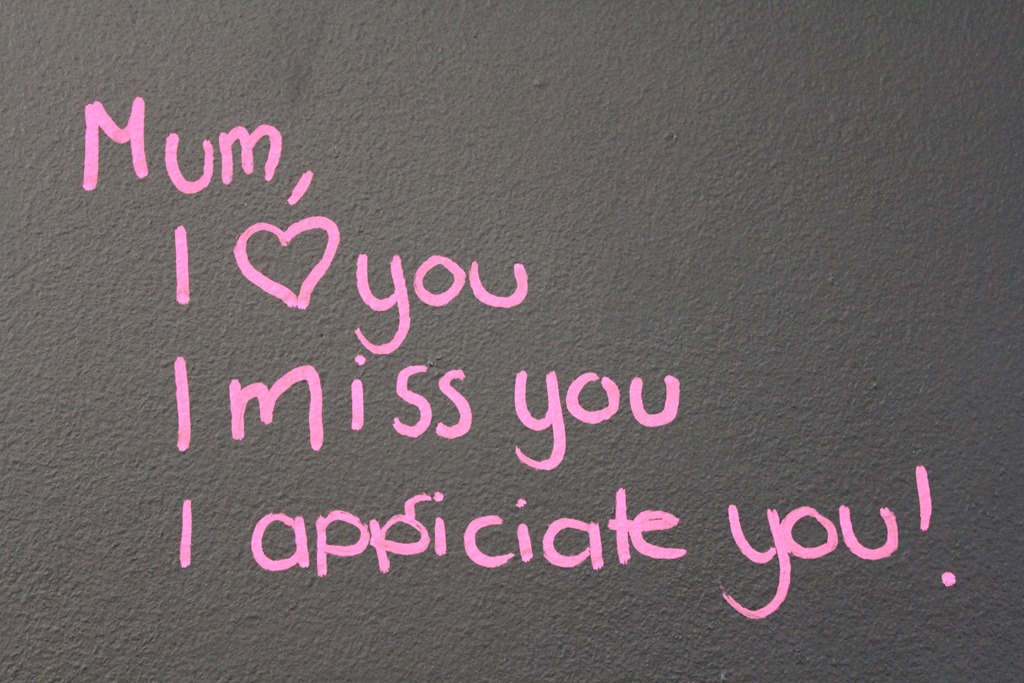 Mum,
I ♡ you
I miss you
I appriciate you!